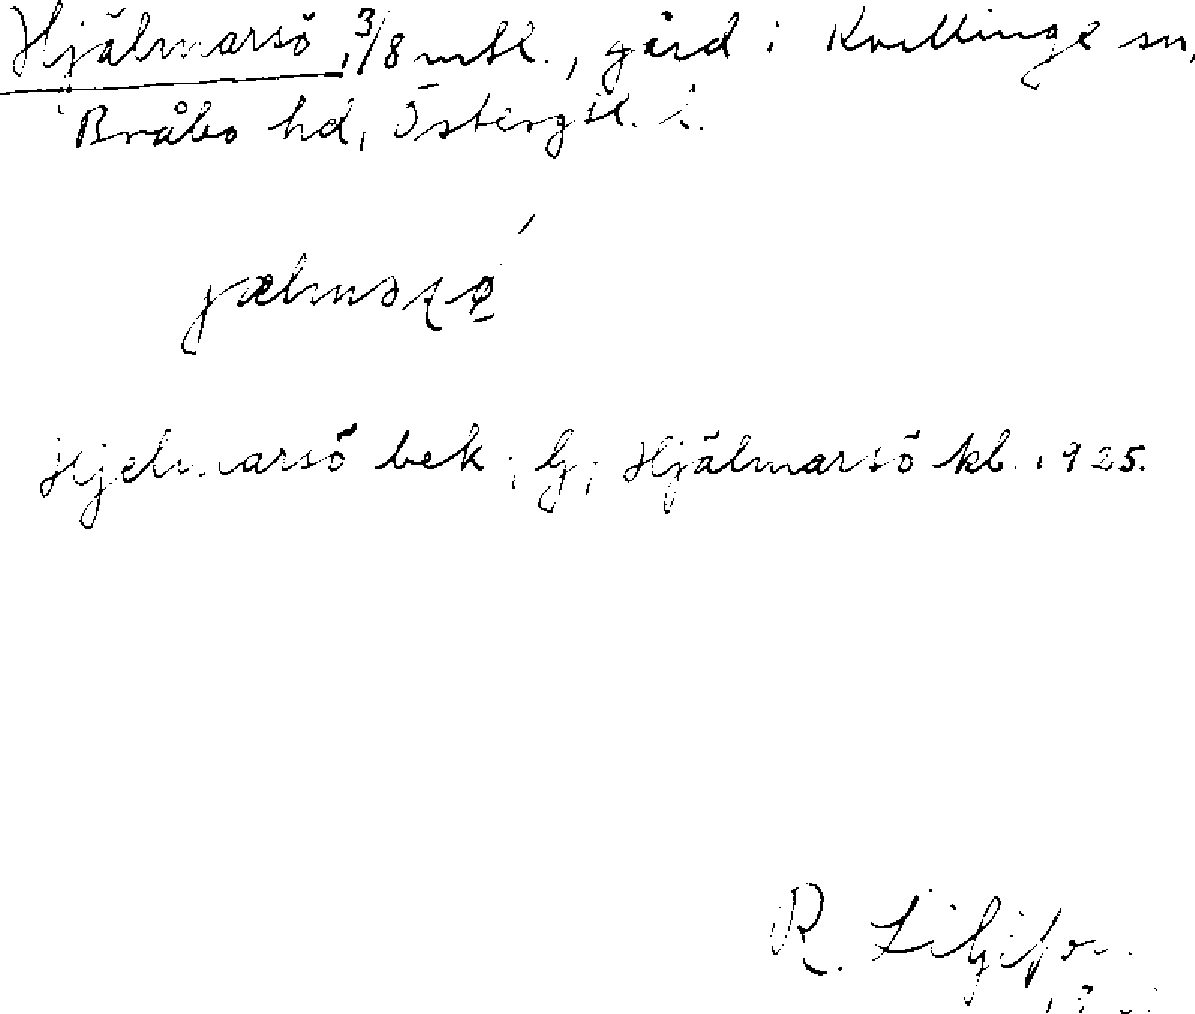 Hjälmarsö, 3/8 mtl., gård i Kvillinge sn,
Bråbo hd, Östergtl. l.
Hjelmarsö bek; G; Hjälmarsö kb. 1925.
R. Liljefors